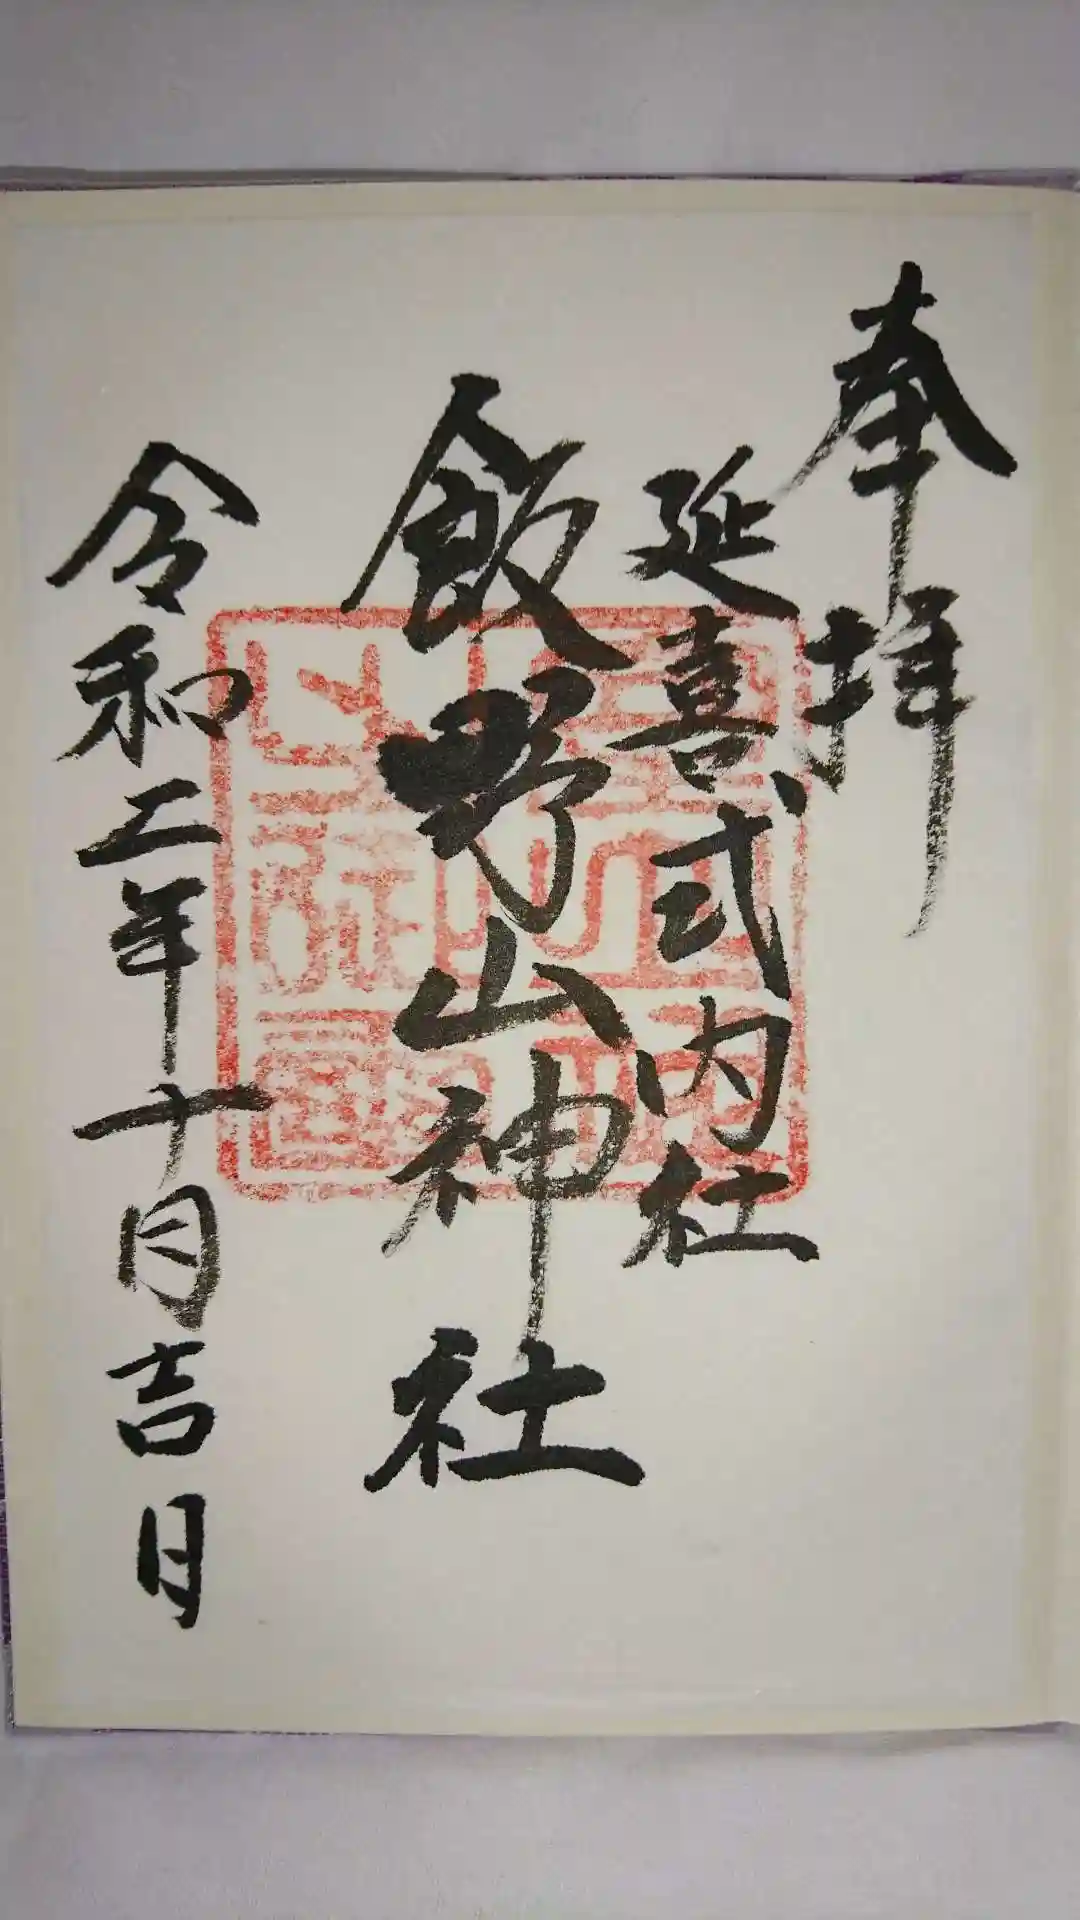 奉拝
延喜式内社
飯野山神社
令和二年十月吉日